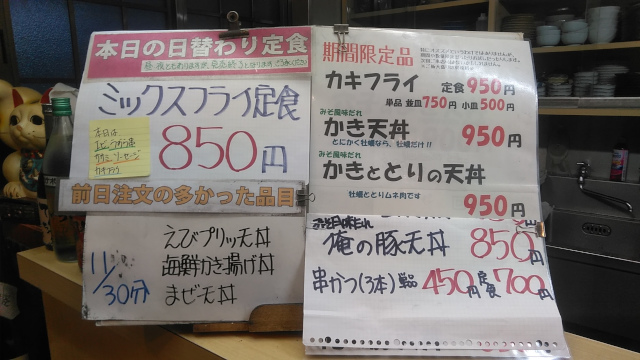 本日の日替わり定食
ミックスフライ定食
850円
本日は
カキフライ
前日注文の多かった品目
11/30分
えびプリッ天丼
海鮮かき揚げ丼
まぜ天丼
期間限定品
カキフライ 定食 950円
単品 並皿 750円 小皿 500円
みそ風味だれ
かき天丼 950円
とにかく牡蠣なら、牡蠣だけ!!
みそ風味だれ
かきととりの天丼
牡蠣ととりムネ肉です
950円
みそ風味だれ
俺の豚天丼 850円
串かつ(3本) 単品 450円 定食 700円